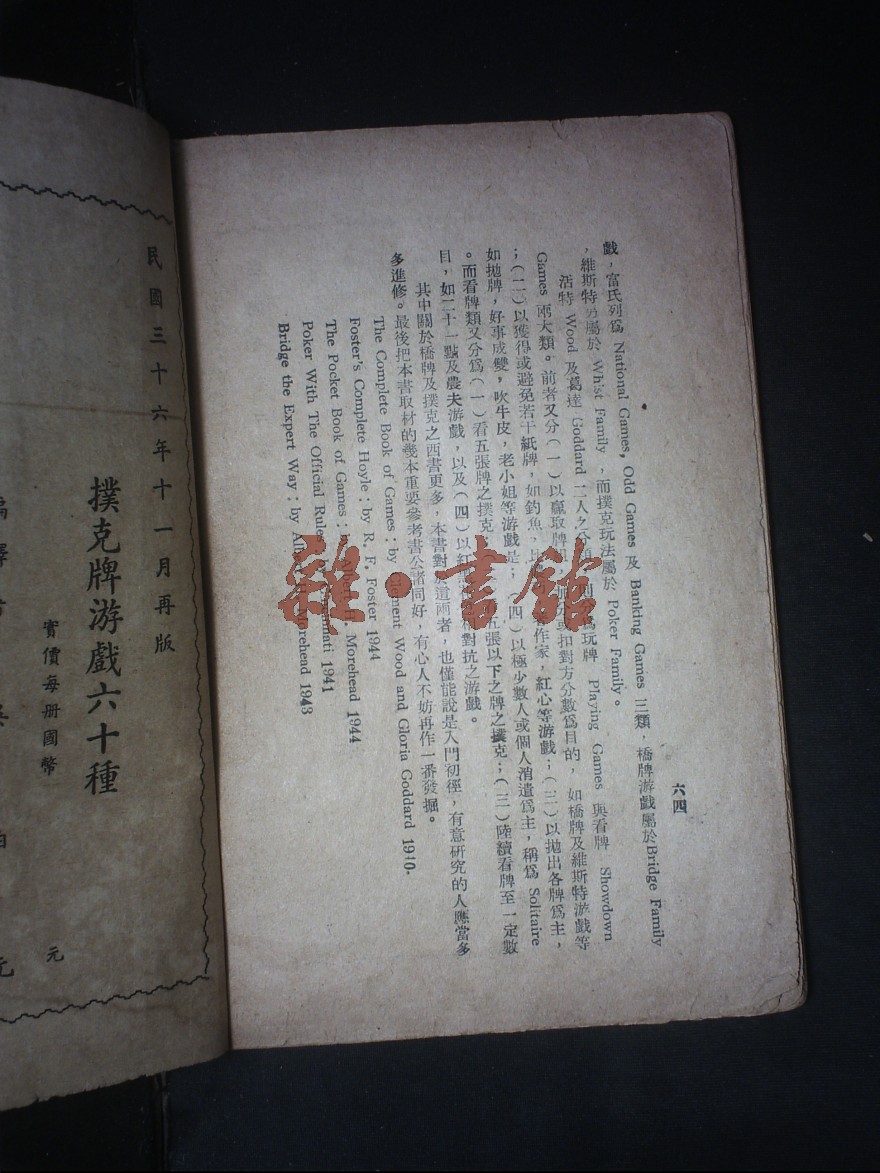 六四
戲，富氏列爲 National Games, Odd Games 及 Banking Games 三類，橋牌游戲屬於Bridge Family
，維斯特另屬於 Whist Family ，而撲克玩法屬於 Poker Family。
活特 Wood 及葛達 Goddard 二人之 爲玩牌 Playing Games 與看牌 Showdown
Games 兩大類。前者又分（一）以贏取牌 扣對方分數爲目的，如橋牌及維斯特游戲等
；（二）以獲得或避免若干紙牌，如釣魚， 作家，紅心等游戲；（三）以拋出各牌爲主，
如拋牌，好事成雙，吹牛皮，老小姐等游戲是；（四）以極少數人或個人消遣爲主，稱爲 Solitaire
。而看牌類又分爲（一）看五張牌之撲克 五張以下之牌之撲克；（三）陸續看牌至一定數
目，如二十一點及農夫游戲，以及（四）以紅 對抗之游戲。
其中關於橋牌及撲克之西書更多，本書對於這兩者，也僅能說是入門初徑，有意研究的人應當多
多進修。最後把本書取材的幾本重要參考書公諸同好，有心人不妨再作一番發掘。
The Complete Book of Games : by Clement Wood and Gloria Goddard 1940.
Foster's Complete Hoyle : by R. F. Foster 1944
The Pocket Book of Games : by Albert H. Morehead 1944
Poker With The Official Rules 1941
Bridge the Expert Way : by Morehead 1943
民國三十六年十一月再版
撲克牌游戲六十種
實價每册國幣 元
編譯者
雜·書館